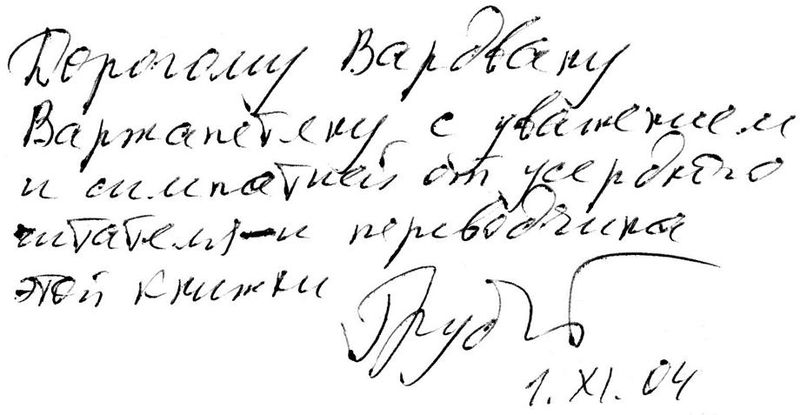 Дорогому Вардвану
Варжапетяну с уважением
и симпатией от усердного
читателя и переводчика
этой книжки
1. XI. 04